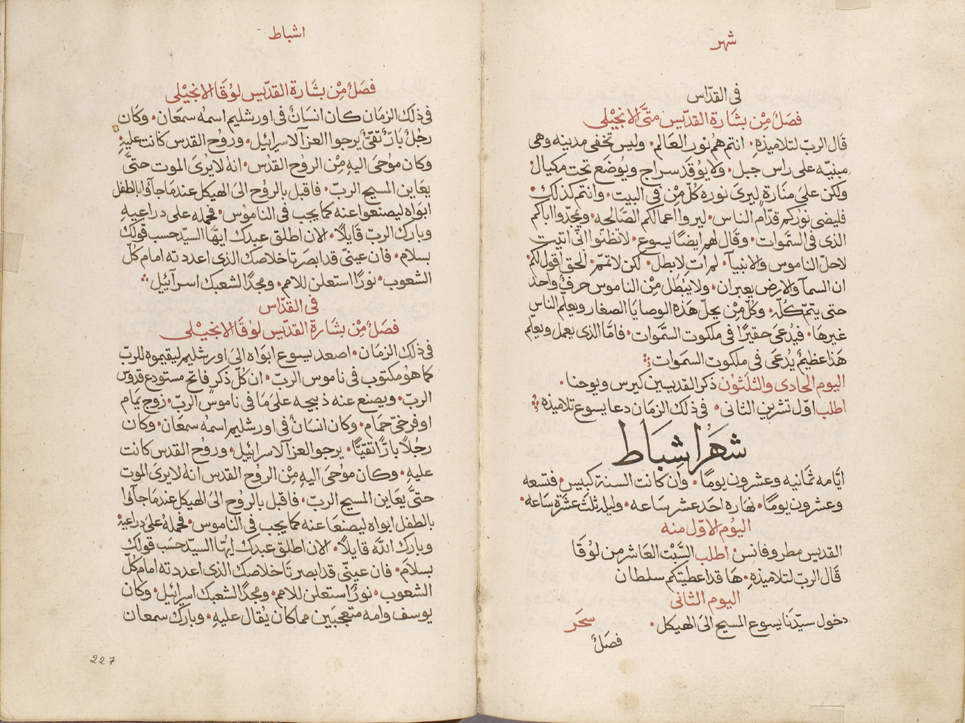 شهر
فى القدّاس
فصلٌ مِنْ بشارة القدّيس متّى الانجيْلى
قال الربّ لتلاميذهِ • انتم هم نور العالم • وليس تخفى مدينه وهى
مبنيّه على راس جبل • ولا يوقد سراج ويوضَع تحت مكيال •
ولكن على منارةٍ ليرى نوره كلّ مَنْ فى البيت • وانتم كذلك •
فليضى نوركم قدّام الناس • ليروا اعمالكم الصّالحه • ويمجّدوا اباكم
الذى فى السّموات • وقال لهم ايضًا يسوع • لا تظنّوا انّى اتيت
لاحلّ الناموس والانبيآ • لم ات لابطل • لكن لاتمّم • الحق اقول لكم •
ان السمآ والارض يعبران • ولا يبْطل مِنْ الناموس حرفٌ واحد
حتى يتمّ كلّه • وكلّ مَنْ يحلّ هذه الوصايا الصغار ويعلّم الناس
غيرها • فيُدعَى حقيرًا فى ملكوت السّموات • فامّا الذى يعمل ويعلّم
هذا عظيمٌ يُدعَى فى ملكوت السموات
اليوم الحادى والثلثون ذكر القديسين كيرس ويوحنا •
اطلب اوّل تشرين الثانى • فى ذلك الزمان دعا يسوع تلاميذه
شَهْر اشباط
ايّامه ثمانيه وعشرون يومًا • وان كانت السنة كبيس • فتسعه
وعشرون يومًا • نهاره احد عشر ساعه • وليله ثلث عشرة ساعه •
اليوْم الاوّل منه
القديس مطروفانس اطلب السّبْت العاشر من لوُقا
قال الربّ لتلاميذهِ • ها قد اعطيتكم سلطان
اليوم الثانى
دخول سيّدنا يسوع المسيح الى الهيكل • سَحَر
فصلٌ
اشباط
فصلٌ مِنْ بشارة القدّيس لوُقا الانجيْلى
فى ذلك الزمان كان انسانٌ فى اورشليم اسمه سمعان • وكان
رجلٌ بارٌ تقىٌ يرجوا العزآ لاسرآئيل • وروح القدس كانت عليهِ
وكان موُحَى اليهِ مِنْ الروُح القدس • انه لا يرَى الموت حتىَّ
يعاين المسيح الربّ • فاقبل بالروُح الى الهيكل عند ما جآوُا بالطفل
ابواه ليصنعوا عنه كما يجب فى الناموُس • فحمله على دراعيهِ
وبارك الربّ قايلًا • الان اطلق عبدك ايهّا السيّد حسب قولك
بسلام • فان عينىّ قد ابصَرتا خلاصك الذى اعددته امام كلّ
الشعوب • نورًا استعلن للامم • ومجدًا لشعبك اسرآئيل
فى القدّاس
فصلٌ مِنْ بشارة القدّيس لوُقا الانجيْلى
فى ذلك الزمان • اصعد ليسوع ابوَاه الى اورشليم ليقيموه للربّ
كما هوُ مكتوب فى ناموس الربّ • ان كلّ ذكرٍ فاتح مستودع قدّوس
الربّ • ويصنع عنه ذبيحه على مَا فى ناموُس الربّ • زوج يمام
او فرخىّ حمام • وكان انسانٌ فى اورشليم اسمه سمعان • وكان
رجُلًا بارًّا تقيًّا • يرجو العزآ لاسرآئيل • وروح القدس كانت
عليهِ • وكان موُحَى اليهِ مِنْ الروُح القدس انه لا يرى الموت
حتىَّ يعاين المسيح الربّ • فاقبل بالروُح الى الهيكل عند ما جآوُا
بالطفل ابواه ليصنعَا عنه كما يجب فى الناموس • فحمله على دراعيْهِ
وبارك اللّه قايلًا • الان اطلق عبدك ايهّا السيّد حسَب قولك
بسلام • فان عينىّ قد ابصرتا خلاصك الذى اعددته امام كلّ
الشعوب • نورًا استعلن للامم • ومجدًا لشعبك اسرآئيل • وكان
يوسف وامه متعجّبين مما كان يُقال عليهِ • وبارك سمعان
227